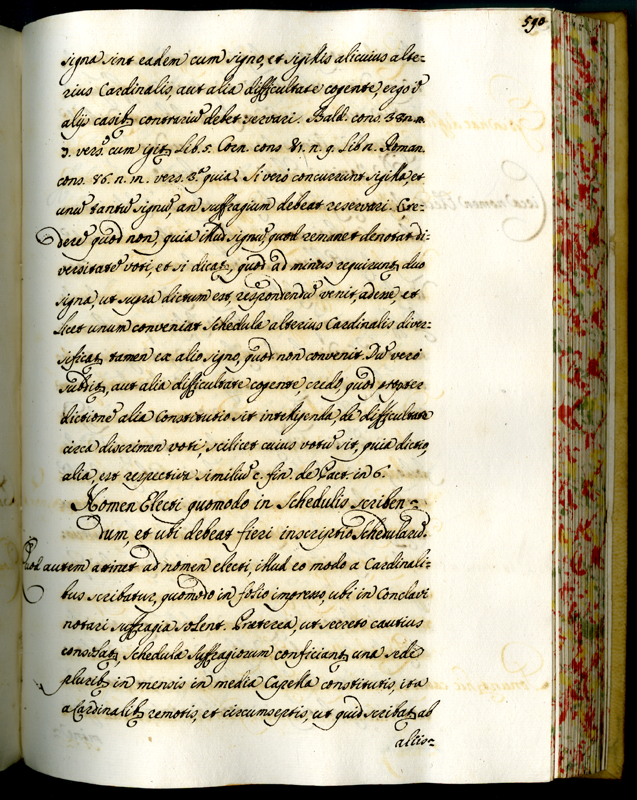 590
signa sint eadem cum signo, et sigillis alicuius alte=
rius Cardinalis, aut alia difficultate cogente, ergo ī
alijs casib; contrariū debet servari. Bald. cons. 332. n.
3. vers. cum igit; Lib. 5. Corn. cons 81. n. 9. Lib. Roman.
cons. 86. n. in. vers. 3.ª quia. Si vero concurrunt sigilla, et
unū tantū signū, an suffragium debeat reservari. Cre=
derē quod non, quia illud signū, quod remanet denotat di=
versitatē voti, et si dicat;, quod ad minus requirunt; duo
signa, ut supra dictum est, respondendū venit, ademp. et
licet unum conveniat Schedula alterius Cardinalis diver=
sificat; tamen ex alio signo, quod non convenit. Dū vero
subdit;, aut alia difficultate cogente credo, quod propter
dictionē alia Constitutio sit intelligenda, de difficultate
circa discrimen voti, scilicet cuius votū sit, quia dictio,
alia, est respectiva similiū c. fin. de Pact. in 6.
Nomen Electi quomodo in Schedulis scriben=
dum, et ubi debeat fieri inscriptio Schedularū.
Quod autem attinet ad nomen electi, illud eo modo a Cardinali=
bus scribatur, quomodo in folio impresso, ubi in Conclavi
notari suffragia solent. Praeterea, ut secreto cautius
consulat;, Schedula suffragiorum conficiant; una sede
plurib; in mensis in media Capella constitutis, ita
a Cardinalib; remotis, et circumseptis, ut quid scribat; ab
altis=